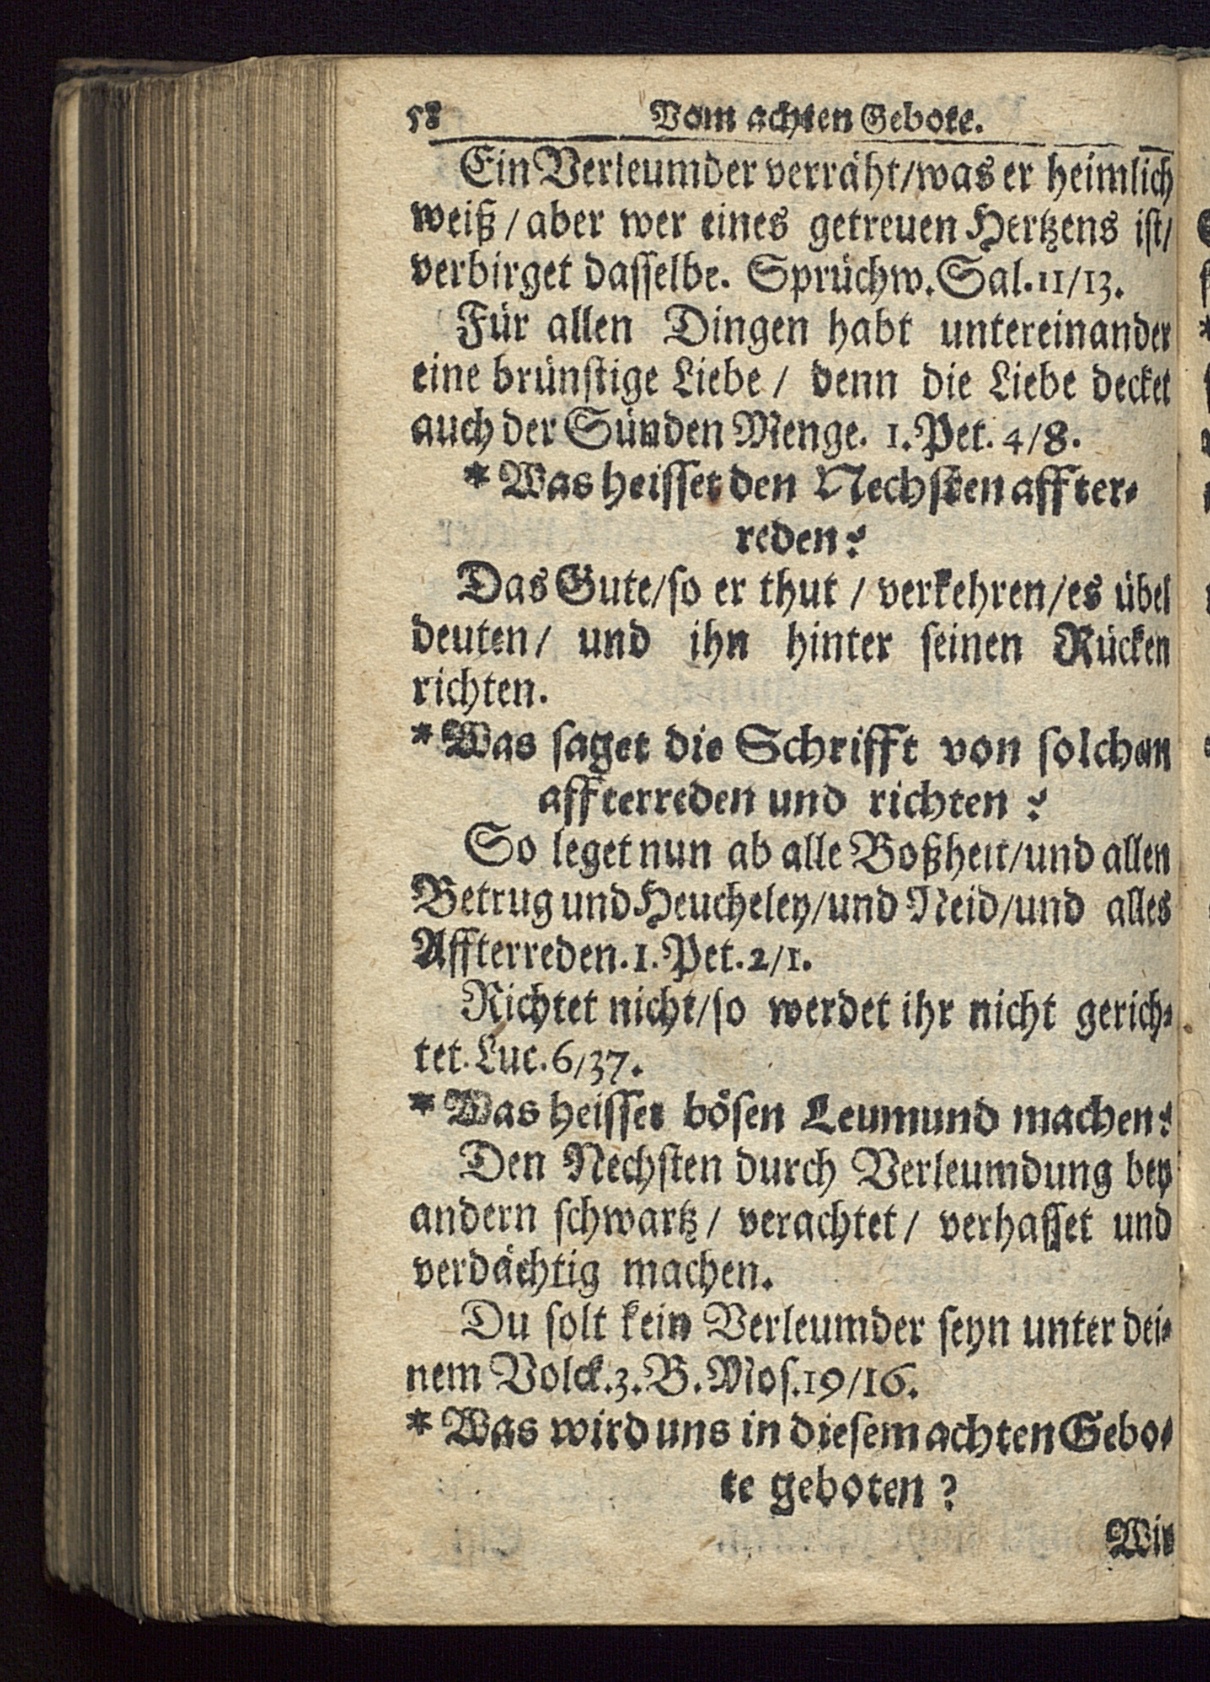 58 Vom achten Gebote.
Ein Verleumder verräht/was er heimlich
weiß / aber wer eines getreuen Hertzens ist/
verbirget dasselbe. Sprüchw. Sal. 11/13.
Für allen Dingen habt untereinander
eine brünstige Liebe / denn die Liebe decket
auch der Sünden Menge. 1. Pet. 4/8.
* Was heisset den Nechsten affter-
reden?
Das Gute/so er thut / verkehren/es übel
deuten/ und ihn hinter seinen Rücken
richten.
* Was saget die Schrifft von solchen
affterreden und richten ?
So leget nun ab alle Boßheit/und allen
Betrug und Heucheley/und Neid/und alles
Affterreden. 1. Pet. 2/1.
Richtet nicht/so werdet ihr nicht gerich-
tet. Luc. 6/37.
* Was heisset bösen Leumund machen?
Den Nechsten durch Verleumdung bey
andern schwartz/ verachtet/ verhasset und
verdächtig machen.
Du solt kein Verleumder seyn unter dei-
nem Volck. 3. B. Mos. 19/16.
* Was wird uns in diesem achten Gebo-
te geboten ?
Wir